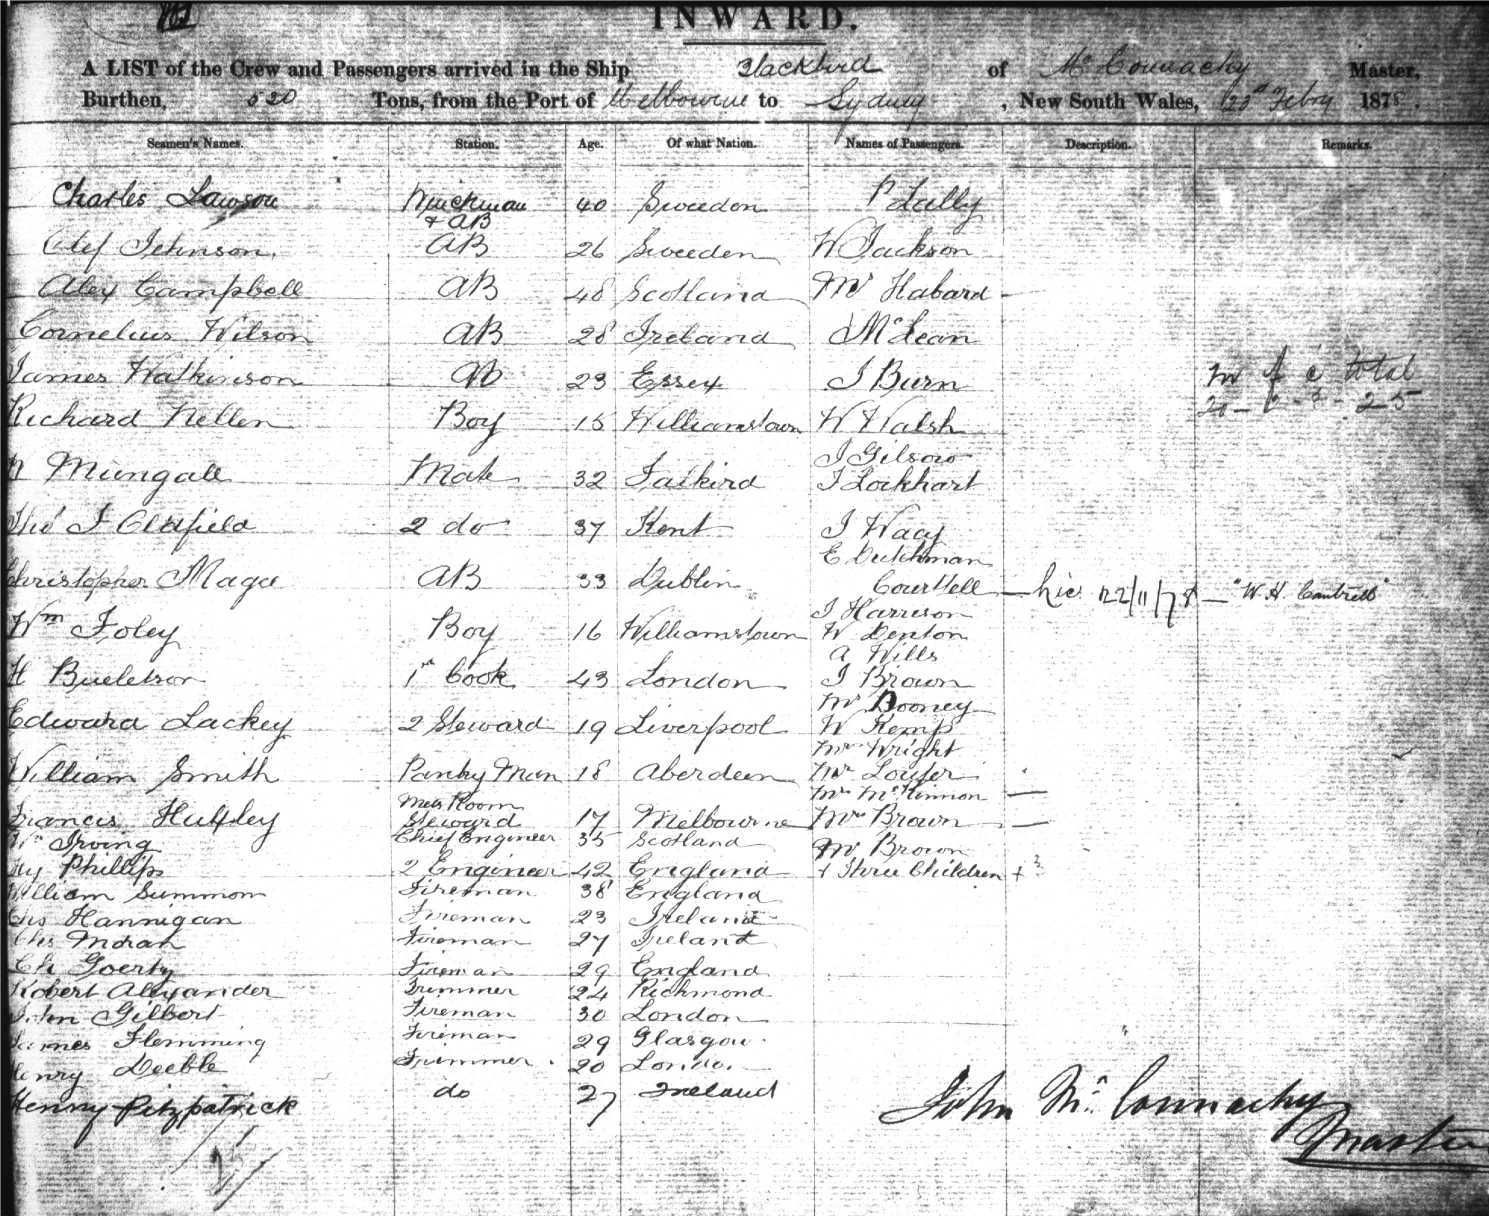 INWARD.
A LIST of the Crew and Passengers arrived in the Ship Blackbird of Mc Connachy Master,
Burthen, 520 Tons, from the Port of Melbourne to Sydney, New South Wales, 20th Febry 1878.
Seamen's Names. Station. Age. Of what Nation. Names of Passengers. Description. Remarks.
Charles Lawson Winchman 40 Sweedon P Lally
& AB
Johnson. AB 26 Sweeden W Jackson
Alex Campbell AB 48 Scotland Mr Habard —
Cornelius Wilson AB 28 Ireland McLean
James Watkinson AB 23 Essex J Burn M f c total
Richard Nellen Boy 15 Williamstown W Walsh 20 - 2 - 3 - 25
J Gilson
Mungall Mate 32 Falkird J Lockhart
Thos J Oldfield 2 do 37 Kent J Wacy
E Dutchman
Christopher Magee AB 33 Dublin Courtlell — lic 22/11/78 — "W. H. Cantrell"
J Harrison
Wm Foley Boy 16 Williamstown W Denton
A Wills
H 1st Cook 43 London J Brown
Mr Dooney
Edward Lackey 2 Steward 19 Liverpool W Kemp
Mr Wright
William Smith Pantry Man 18 Aberdeen Mr
Mess Room Mrs McKinnon —
Francis Huffley Steward 17 Melbourne Mrs Brown —
Wm Irving Chief Engineer 35 Scotland Mr Brown
Hy Phillips 2 Engineer 42 England + Three Children + 3
William Summom Fireman 38 England
Chs Hannigan Fireman 23 Ireland
Chs Moran Fireman 27 Ireland
Ch Goerty Fireman 29 England
Robert Alexander Trimmer 24 Richmond
John Gilbert Fireman 30 London
James Flemming Fireman 29 Glasgow
Henry Deeble Trimmer 20 London
Henry Fitzpatrick do 27 Ireland
John McConnachy
Master
25